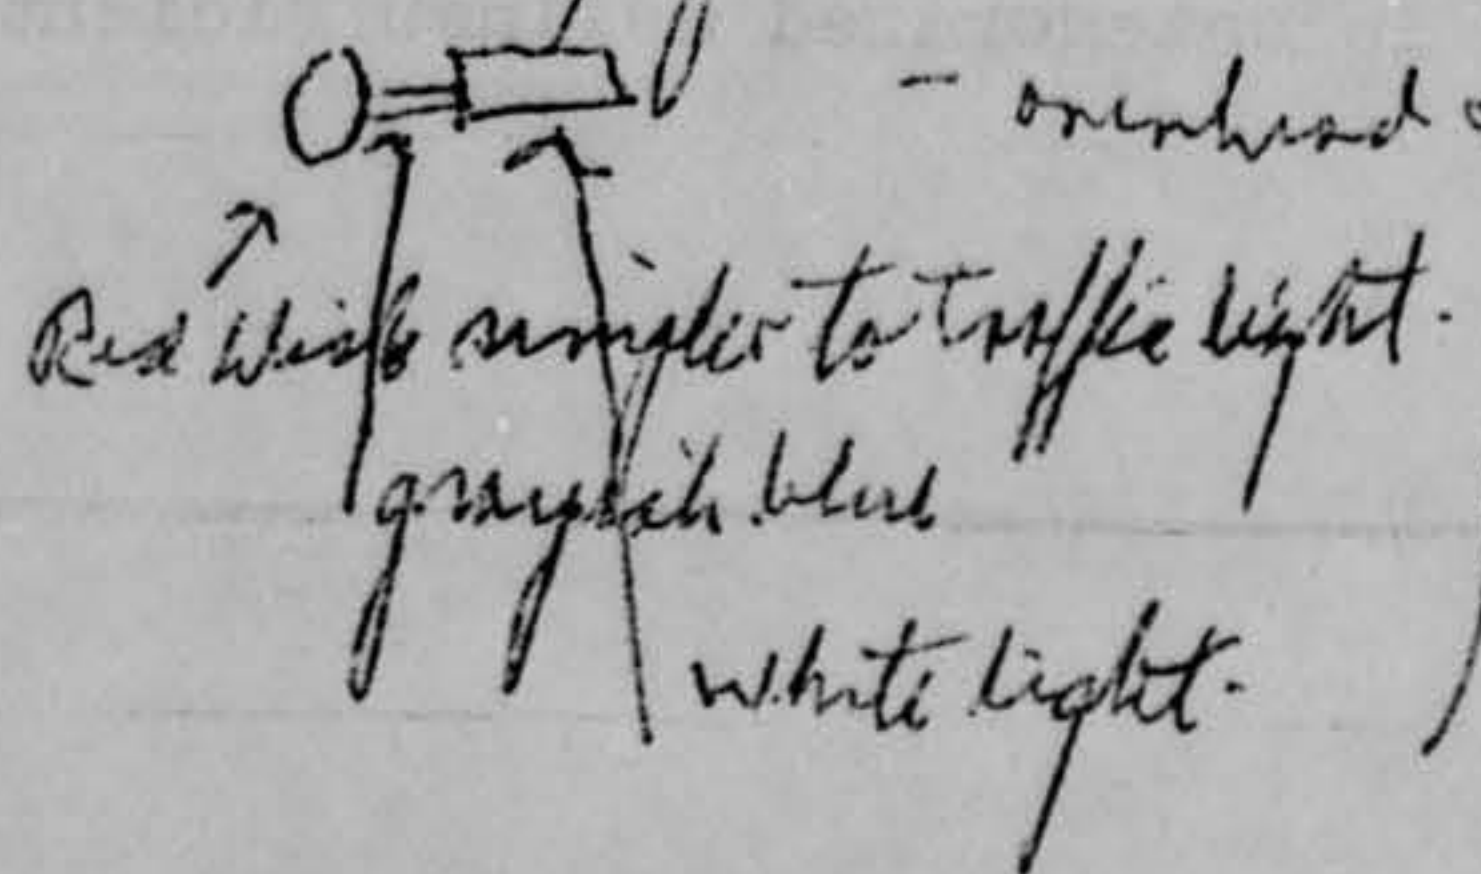 - overhead
Red Disk similar to Traffic light.
grayish blue
white light.